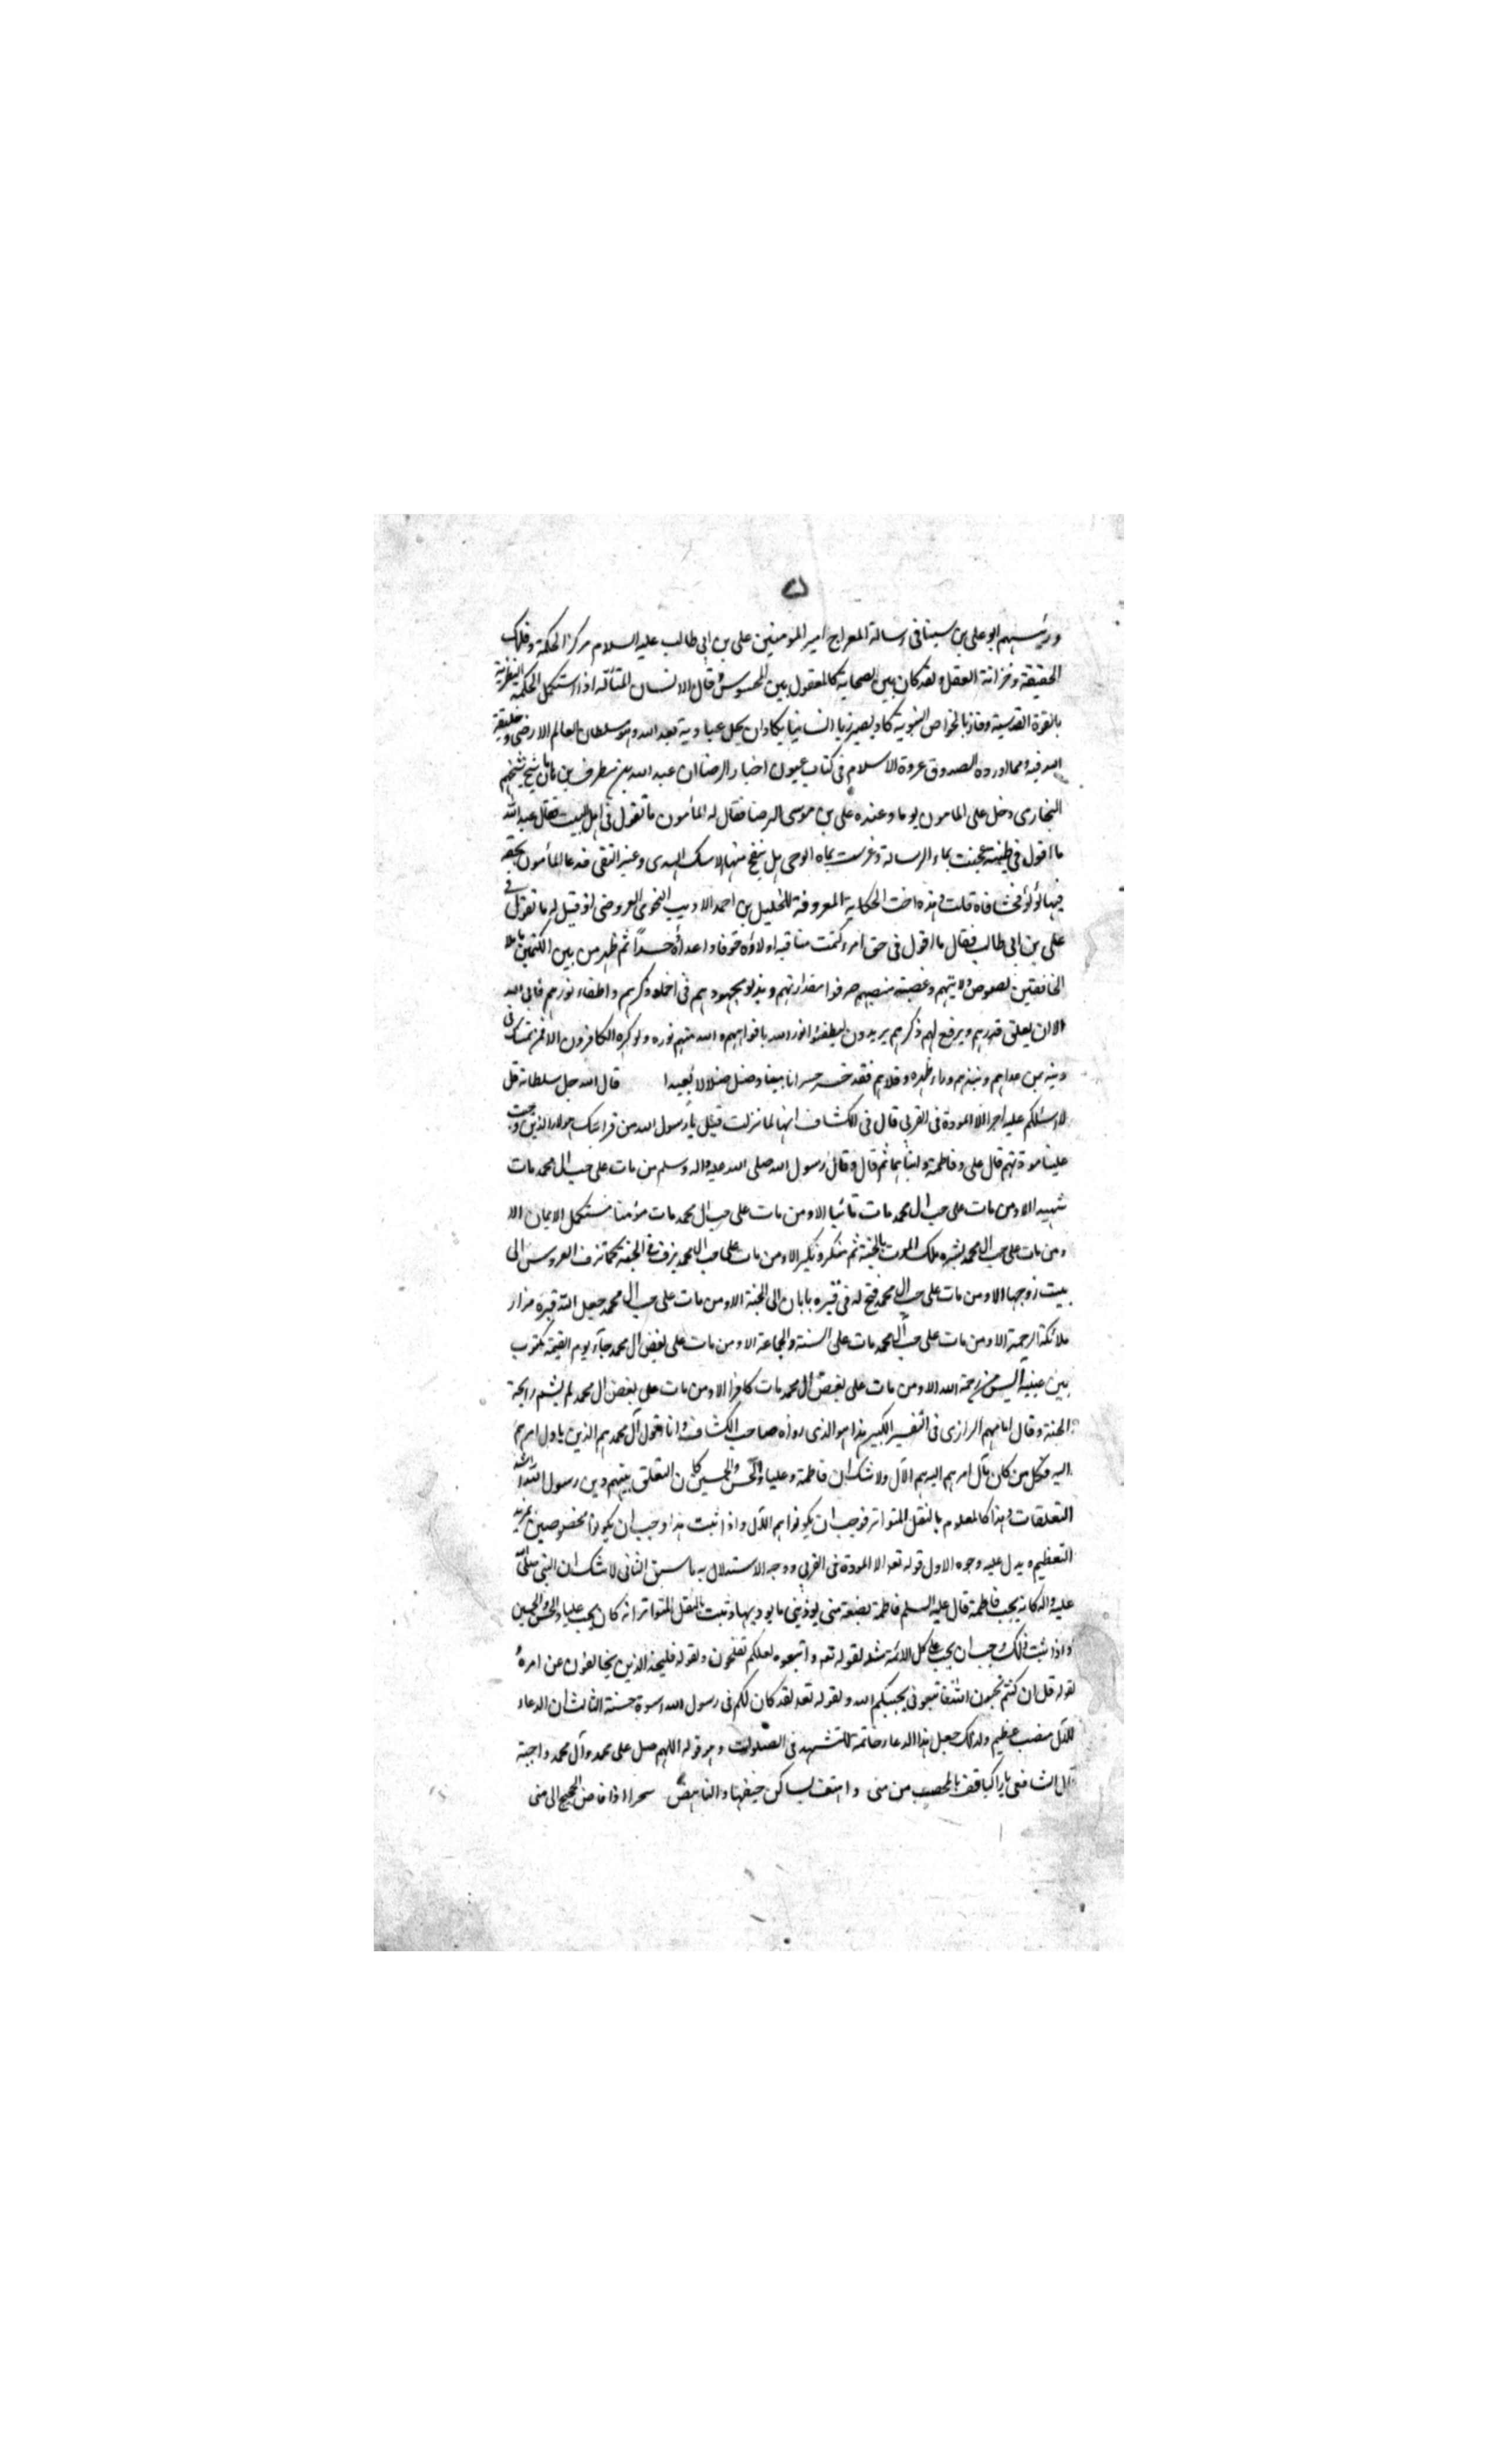 ورئيسهم ابو على بن سينا فى رسالة المعراج امير المومنين على بن ابى طالب عليه السلام مركز الحكمة وفلك
الحقيقة وخزانة العقل ولقد كان بين الصحابة كالمعقول بين المحسوس وقال الانسان المتأله اذا استكمل الحكمة النظرية
بالقوة القدسية وفاز بالخواص النبوية كاد يصير ربا انسانيا يكاد ان يحل عبادته بعد الله وهو سلطان العالم الارضى وخليفة
الله فيه ومما اورده الصدوق عروة الاسلام فى كتاب عيون اخبار الرضا ان عبد الله بن مطرف بن هامان شيخ شيخهم
البخارى دخل على المامون يوما وعنده على بن موسى الرضا فقال له المأمون ما تقول فى اهل البيت فقال عبد الله
ما اقول فى طينة عجنت بماء الرسالة وغرست بماء الوحى هل ينفح منها الا مسك الهدى وعنبر التقى فدعا المأمون بحقة
فيها لؤلؤ فحشا فاه قلت وهذه اخت الحكاية المعروفة للخليل بن احمد الاديب النحوى العروضى اذ قيل له ما تقول فى
على بن ابى طالب فقال ما اقول فى حق امرء كتمت مناقبه اولاؤه خوفا واعداؤه حسدا ثم ظهر من بين الكتمين ما ملا
الخافقين لصوص ولايتهم وغصبة منصبهم صرفوا مقدارتهم وبذلو مجهودهم فى اخماد ذكرهم واطفاء نورهم فابى الله
الا ان يعلى قدرهم ويرفع لهم ذكرهم يريدون ليطفئوا نور الله بافواههم والله متم نوره ولو كره الكافرون الا فمن تمسك فى
دينه بمن عداهم ونبذهم وراء ظهره وقلاهم فقد خسر خسرانا مبينا وضل ضلالا بعيدا قال الله جل سلطانه قل
لا اسئلكم عليه اجرا الا المودة فى القربى قال فى الكشاف انها لما نزلت قيل يا رسول الله من قرابتك هولاء الذين وجبت
علينا مودتهم قال على وفاطمة وابناهما ثم قال وقال رسول الله صلى الله عليه واله وسلم من مات على حب ال محمد مات
شهيدا الا ومن مات على حب ال محمد مات تائبا الا ومن مات على حب ال محمد مات مؤمنا مستكمل الايمان الا
ومن مات على حب ال محمد بشره ملك الموت بالجنة ثم منكر ونكير الا ومن مات على حب ال محمد يزف الى الجنة كما تزف العروس الى
بيت زوجها الا ومن مات على حب ال محمد فتح له فى قبره بابان الى الجنة الا ومن مات على حب ال محمد جعل الله قبره مزار
ملائكة الرحمة الا ومن مات على حب آل محمد مات على السنة والجماعة الا ومن مات على بغض ال محمد جاء يوم القيمة مكتوب
بين عينيه آيس من رحمة الله الا ومن مات على بغض ال محمد مات كافرا الا ومن مات على بغض ال محمد لم يشم رايحة
الجنة وقال امامهم الرازى فى التفسير الكبير هذا هو الذى رواه صاحب الكشاف وانا اقول آل محمد هم الذين ياول امرهم
اليه فكل من كان مآل امرهم اليه هم الآل ولا شك ان فاطمة وعليا والحسن والحسين كان التعلق بينهم وبين رسول الله اشد
التعلقات وهذا كالمعلوم بالنقل المتواتر فوجب ان يكونوا هم الآل واذا ثبت هذا وجب ان يكونوا مخصوصين بمزيد
التعظيم ويدل عليه وجوه الاول قوله تعه الا المودة فى القربى ووجه الاستدلال به ما سبق الثانى لا شك ان النبى صلى الله
عليه واله كان يحب فاطمة قال عليه السلم فاطمة بضعة منى يوذينى ما يوذيها وثبت بالنقل المتواتر انه كان يحب عليا والحسن والحسين
واذا ثبت ذلك وجب ان يجب على كل الامة مثله لقوله تعه واتبعوه لعلكم تفلحون ولقوله فليحذر الذين يخالفون عن امره
لقوله قل ان كنتم تحبون الله فاتبعونى يحببكم الله ولقوله تعه لقد كان لكم فى رسول الله اسوة حسنة الثالث ان الدعاء
للآل منصب عظيم ولذلك جعل هذا الدعاء خاتمة للتشهد فى الصلوات وهو قوله اللهم صل على محمد وآل محمد واجبة
قال الشافعى يا راكبا قف بالمحصب من منى واهتف بساكن خيفها والناهض سحرا اذا فاض الحجيج الى منى